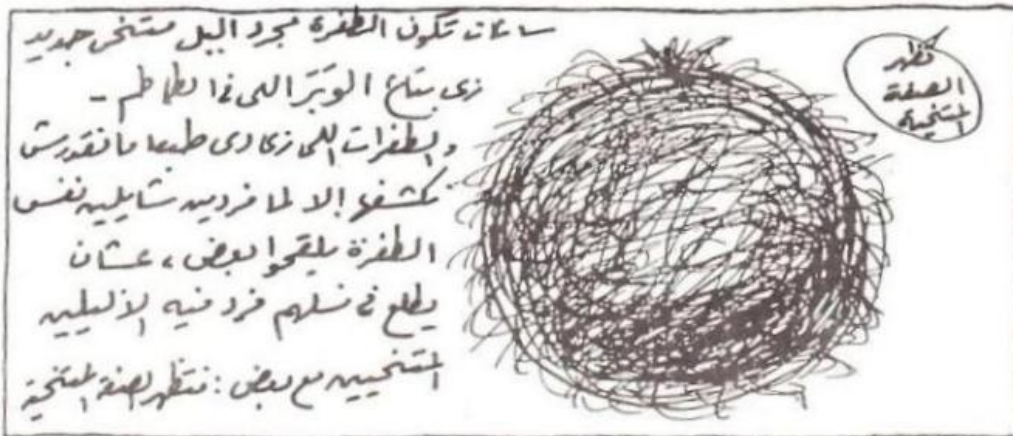 ساعات تكون الطفرة مجرد أليل متنحى جديد
زى بتاع الوَبَر اللى فى الطماطم -
والطفرات اللى زى دى طبعا ما نقدرش
نكشفها إلا لما فردين شايلين نفس
الطفرة يلقحوا بعض، عشان
يطلع فى نسلهم فرد فيه الأليلين
المتنحيين مع بعض: فتظهر الصفة المتنحية
تظهر
الصفة
المتنحية